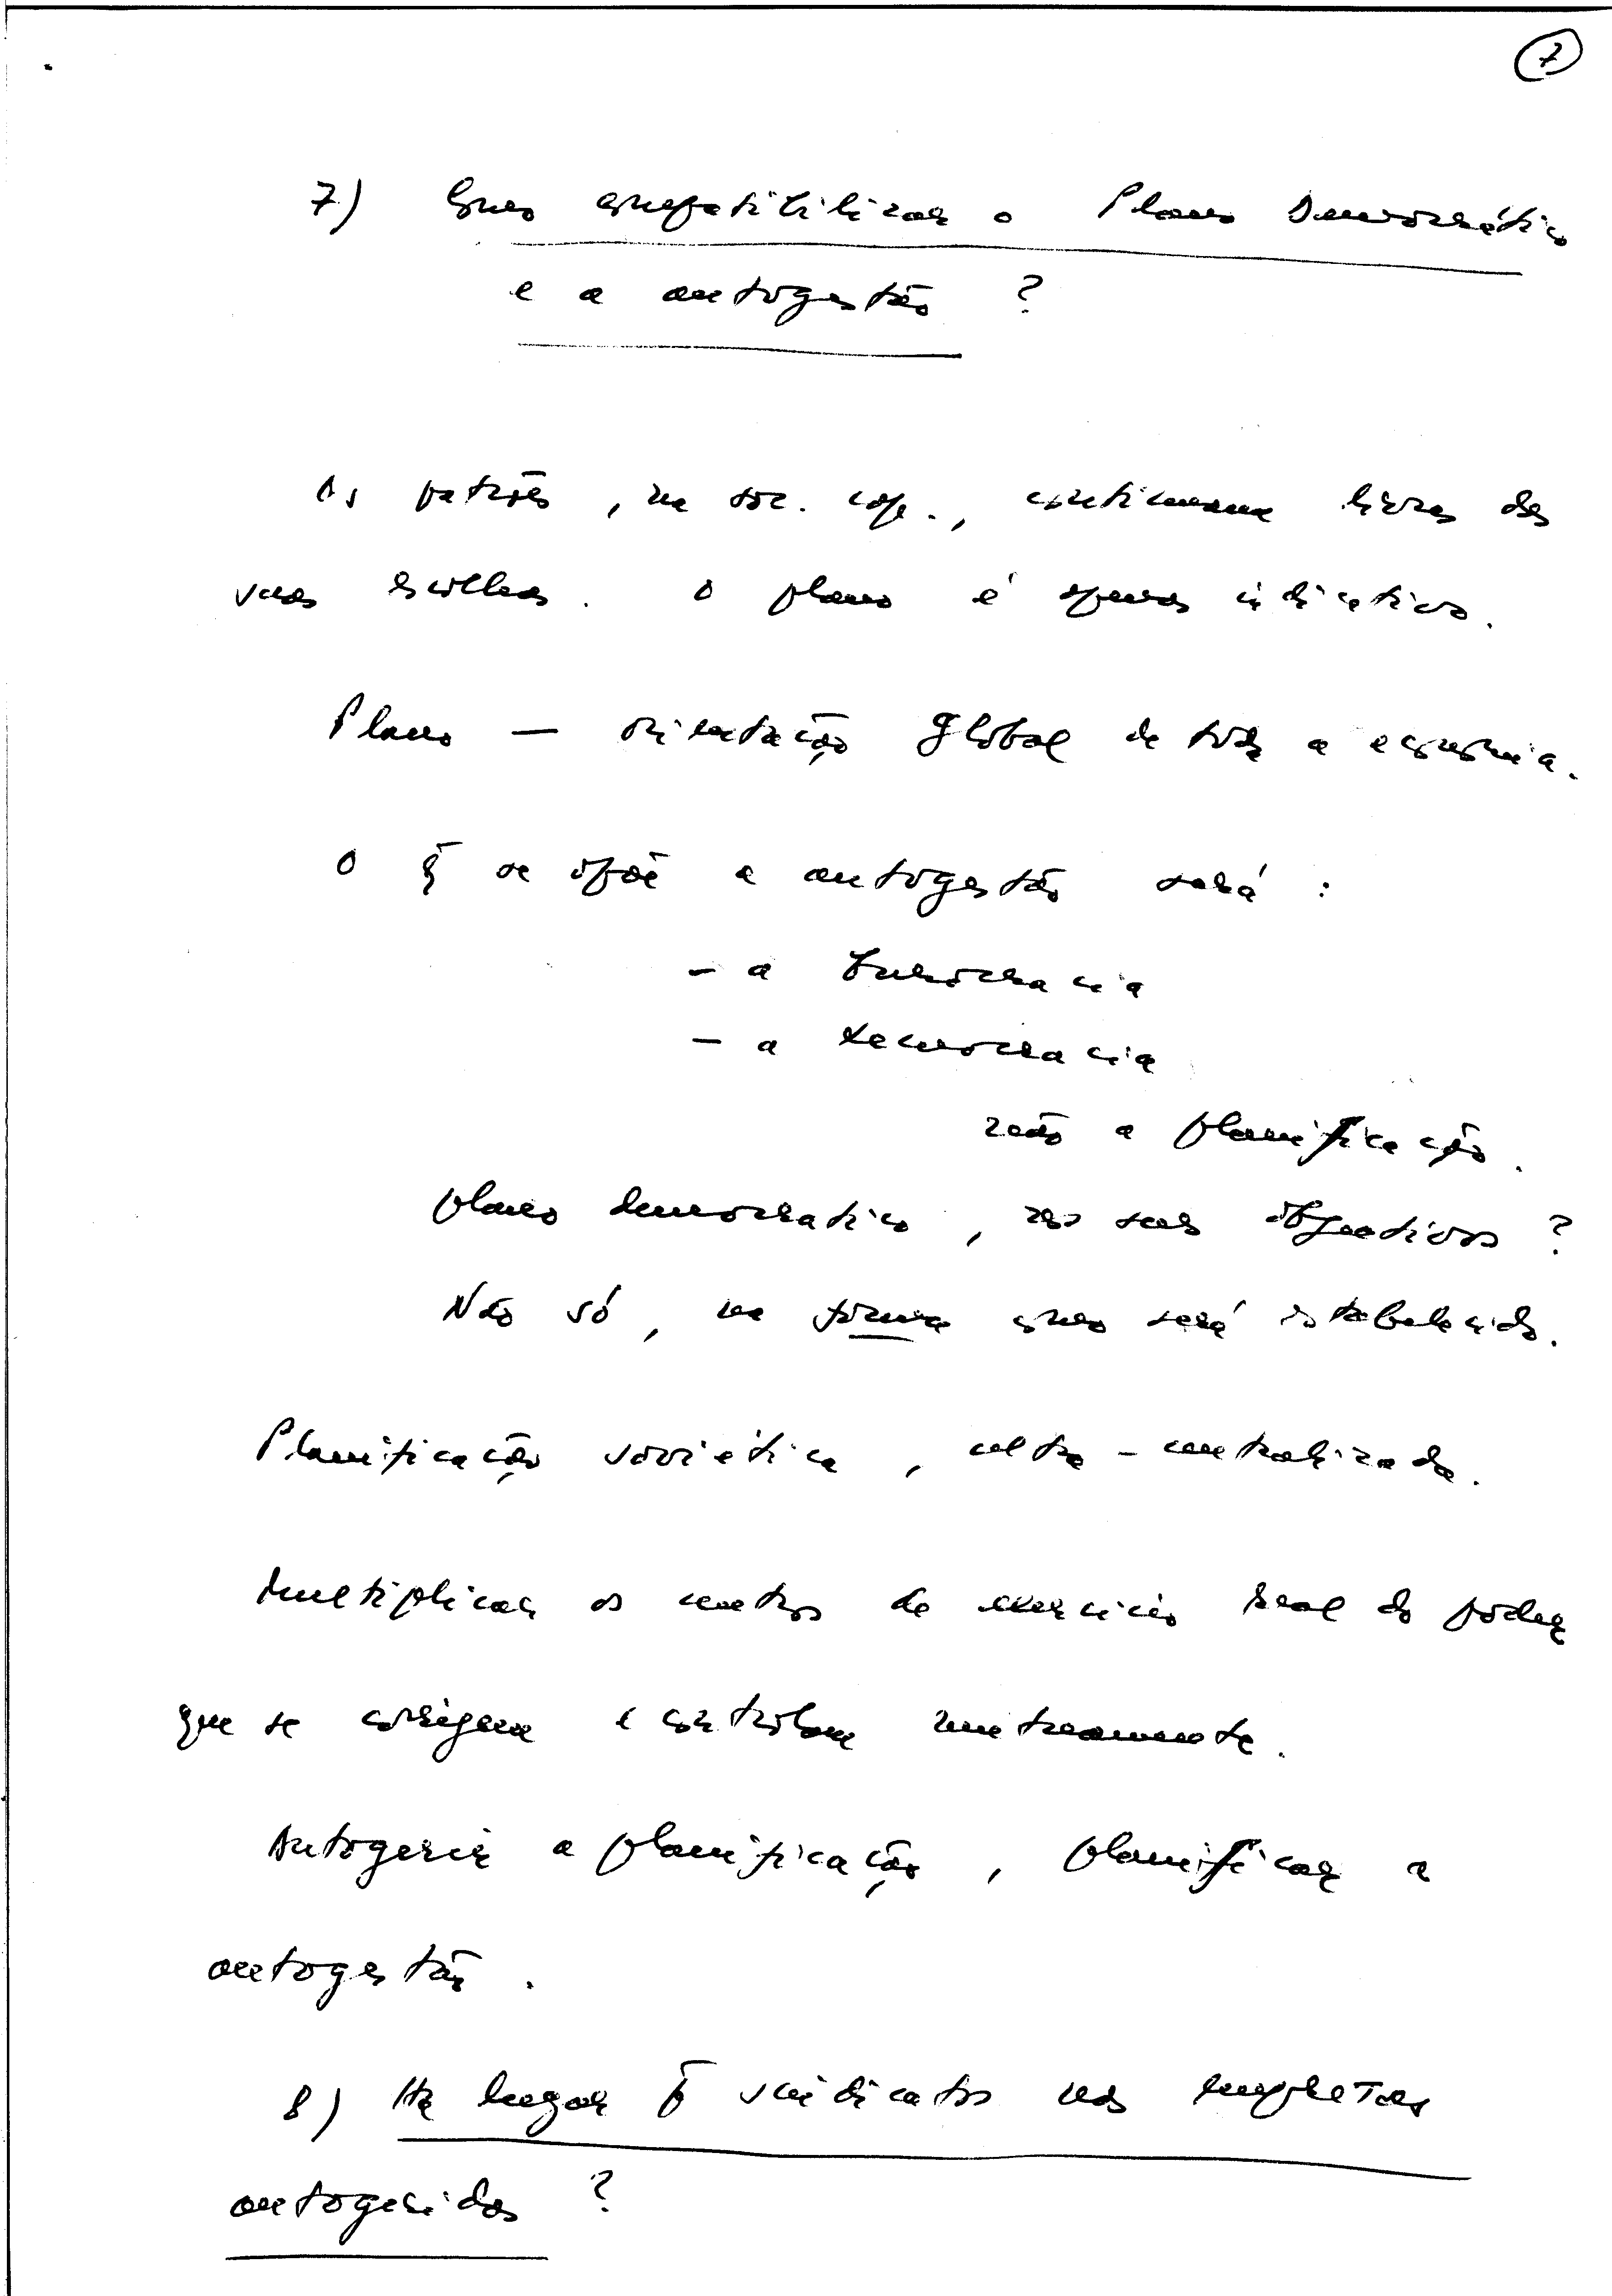 7
7) Como compatibilizar o Plano Democrático
e a autogestão ?
Os patrões, na soc. cap., continuam livres das
suas escolhas. O plano é apenas indicativo.
Plano — orientação global de toda a economia.
O q̄ se opõe a autogestão será :
- a burocracia
- a tecnocracia
não a planificação.
plano democratico, nos seus objectivos ?
Não só, na forma como será estabelecido.
Planificação soviética, ultra-centralizada.
Multiplicar os centros de exercicio real do poder
que se corrigem e controlam mutuamente.
Autogerir a planificação, planificar a
autogestão.
8) Há lugar p̄ sindicatos nas empresas
autogeridas ?